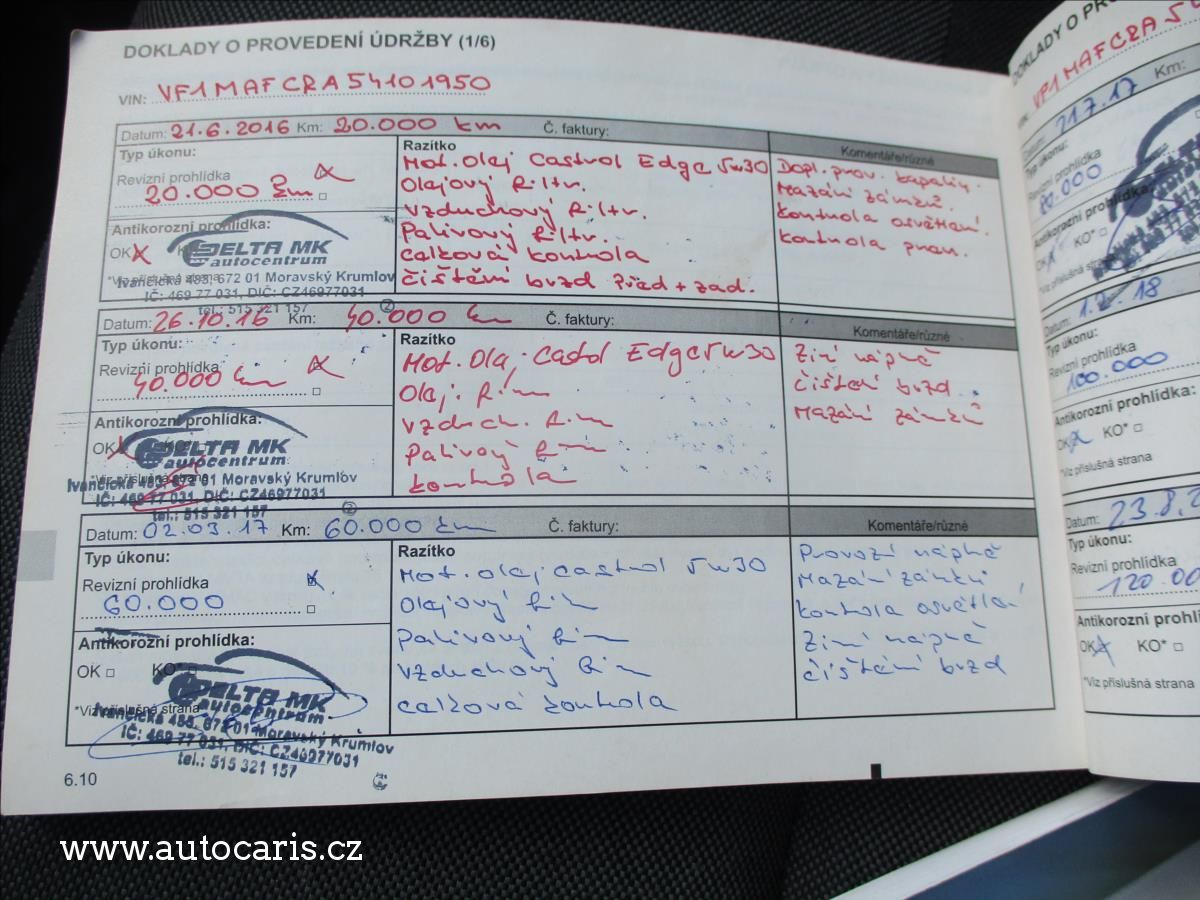 DOKLADY O PROVEDENÍ ÚDRŽBY (1/6)
VIN: VF1MAFCRA54101950
Datum: 21.6.2016 Km: 20.000 km Č. faktury:
Typ úkonu:
Revizní prohlídka
20.000 km
Antikorozní prohlídka:
OK
DELTA MK
autocentrum
*Viz příslušná strana
Ivančická 485, 672 01 Moravský Krumlov
IČ: 469 77 031, DIČ: CZ46977031
tel.: 515 321 157
Razítko
Mot. olej Castrol Edge 5w30
Olejový filtr.
Vzduchový filtr.
Palivový filtr.
Celková kontrola
čištění brzd Před + zad.
Komentáře/různé
Dopl. prov. kapalin.
Mazání zámků.
kontrola osvětlení.
kontrola pneu.
Datum: 26.10.16 Km: 40.000 km Č. faktury:
Typ úkonu:
Revizní prohlídka
40.000 km
Antikorozní prohlídka:
OK KO*
DELTA MK
autocentrum
*Viz příslušná strana
Ivančická 485, 672 01 Moravský Krumlov
IČ: 469 77 031, DIČ: CZ46977031
tel.: 515 321 157
Razítko
Mot. Olej Castrol Edge 5w30
Olej.
Vzduch.
Palivový
kontrola
Komentáře/různé
Zimní náplně
čištění brzd
Mazání zámků
Datum: 02.03.17 Km: 60.000 km Č. faktury:
Typ úkonu:
Revizní prohlídka
60.000
Antikorozní prohlídka:
OK KO*
DELTA MK
autocentrum
*Viz příslušná strana
Ivančická 485, 672 01 Moravský Krumlov
IČ: 469 77 031, DIČ: CZ46977031
tel.: 515 321 157
Razítko
Mot. olej castrol 5w30
Olejový
Palivový
Vzduchový
celková kontrola
Komentáře/různé
Provozní náplně
Mazání zámků
kontrola osvětlení
Zimní náplně
čištění brzd
6.10
DOKLADY O
VF1MAFCRA5
21.7.17 Km:
Typ úkonu:
Revizní prohlídka
80.000
Antikorozní prohlídka
OK KO*
*Viz příslušná strana
Datum: 1.2.18
Typ úkonu:
Revizní prohlídka
100.000
Antikorozní prohlídka:
OK KO*
*Viz příslušná strana
Datum: 23.8.
Typ úkonu:
Revizní prohlídka
120.00
Antikorozní prohlí
OK KO*
*Viz příslušná strana
www.autocaris.cz